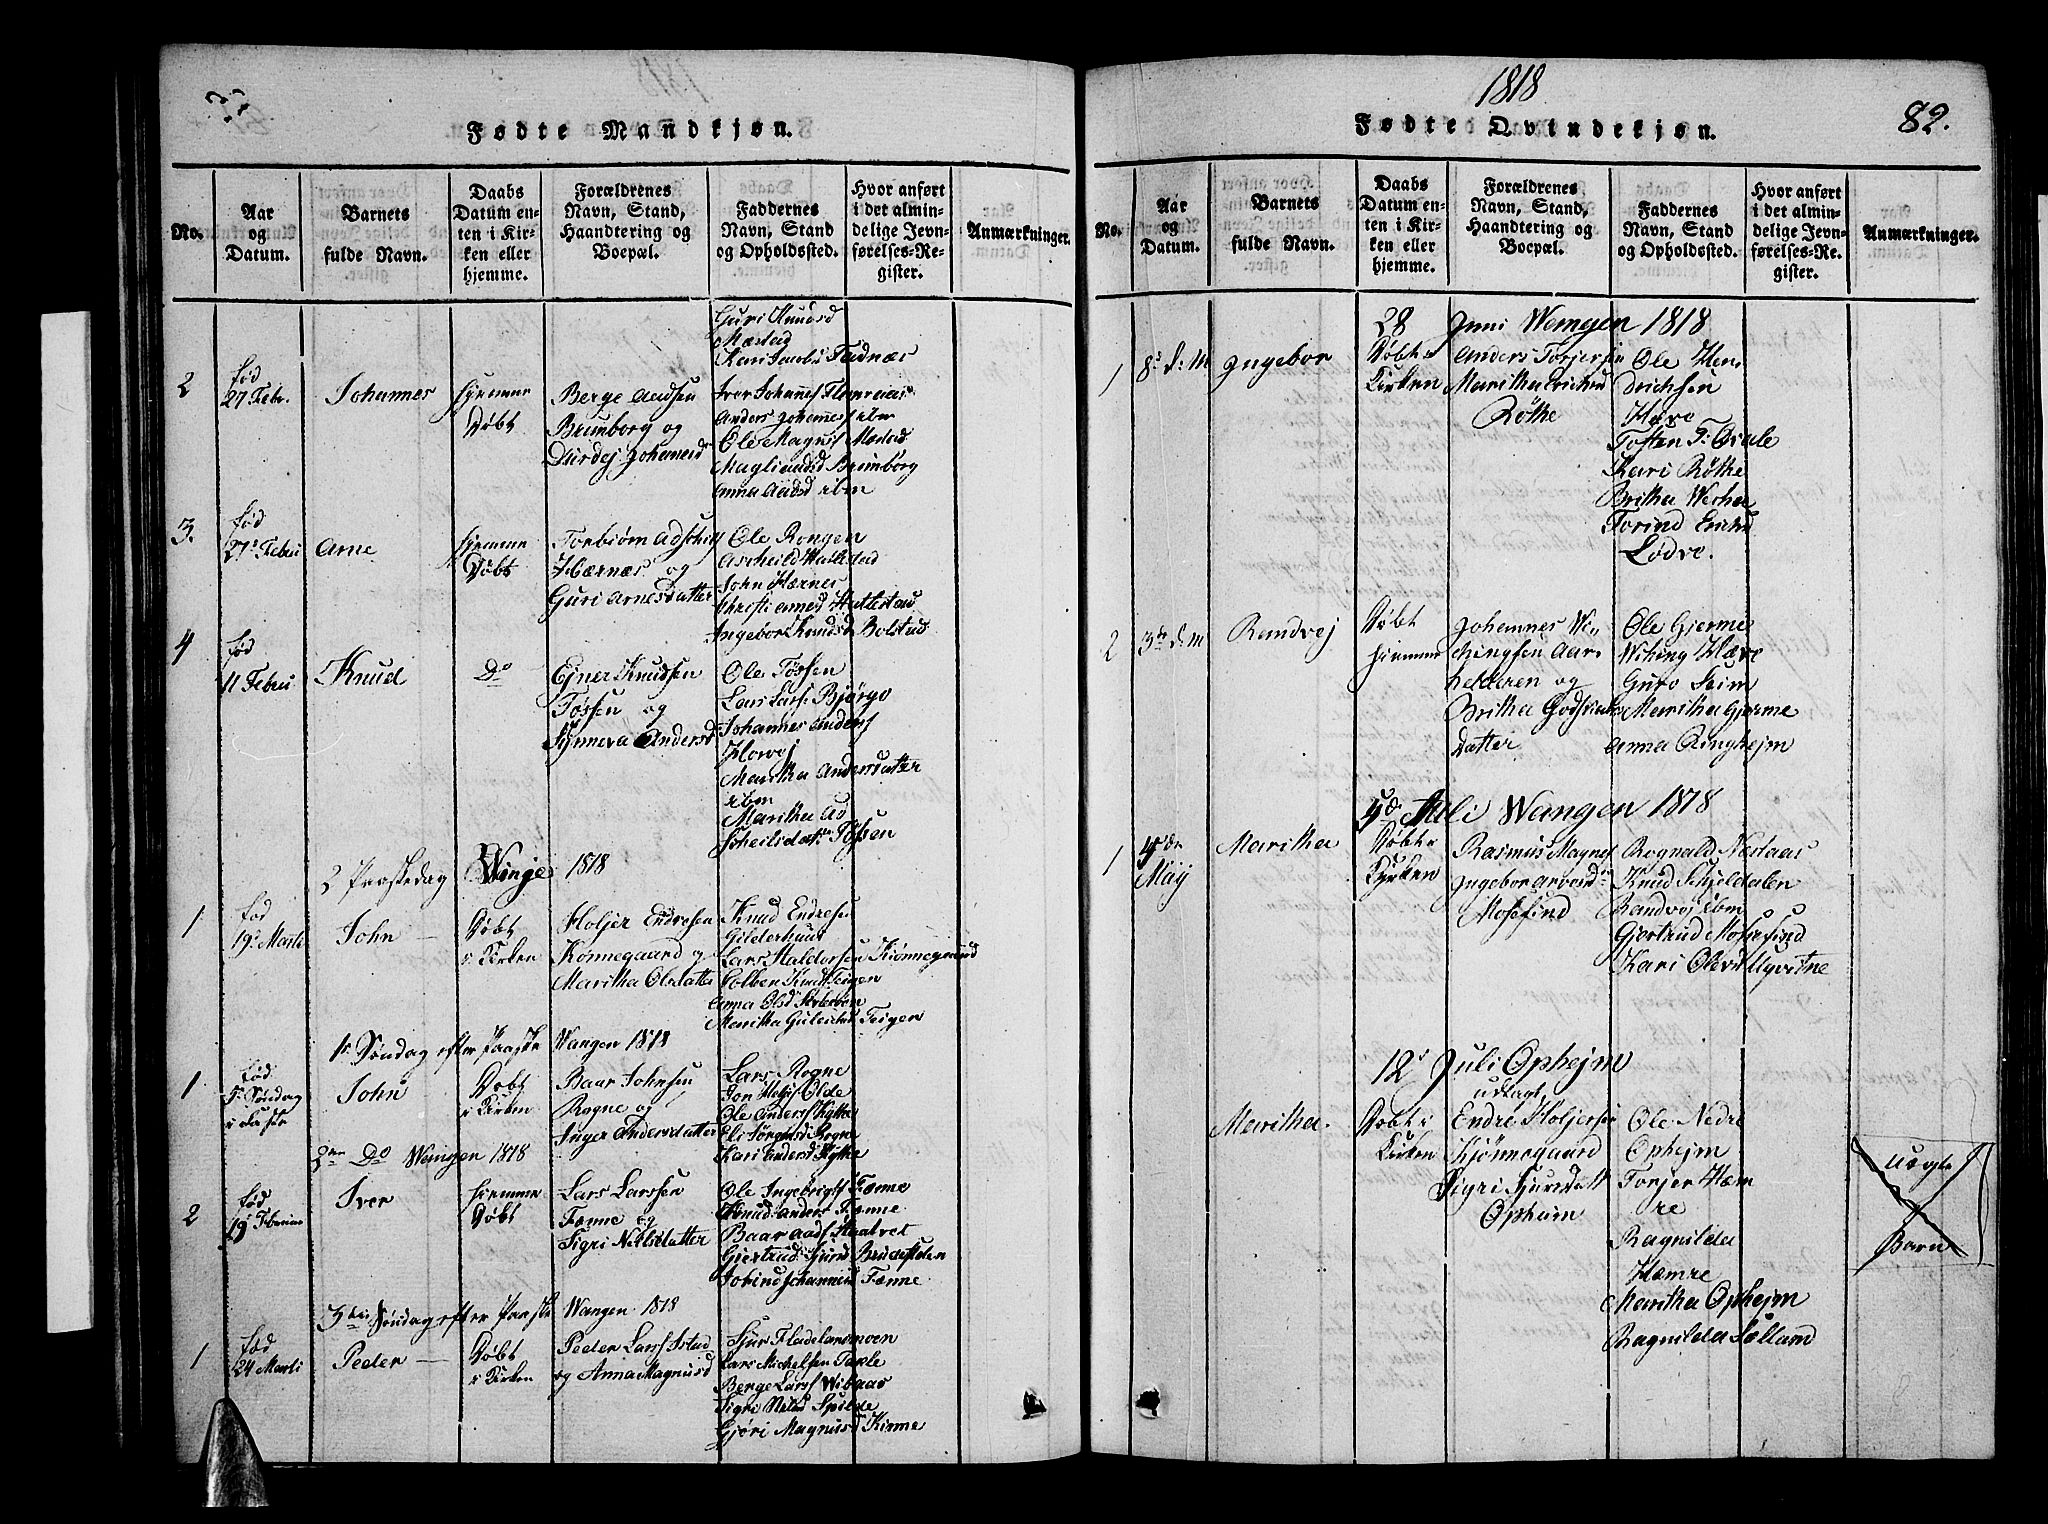 Fødte Mandkjøn.
No.
Aar
og
Datum.
Barnets
fulde Navn.
Daabs
Datum en-
ten i Kir-
ken eller
hjemme.
Forældrenes
Navn, Stand,
Haandtering og
Boepæl.
Faddernes
Navn, Stand
og Opholdssted.
Hvor anført
i det almin-
delige Jevn-
førelses-Re-
gister.
Anmærkninger.
Guri Knudsd
Mæstad
Kari Jacobsd Fadnæs
2
fød
27 Febr.
Johannes
hjemme
Døbt
Berge Aadsen
Brunborg og
Durdej Johannesd
Iver Johannes
Anders Johannes ibm
Ole Magnus Mæstad
Brunborg
Anna Aadsd ibm
3.
fød
Febru
Arne
hjemme
Døbt
Torbiørn
Hærnæs og
Guri Arnesdatter
Ole Rongen
Ascheild Hallestad
John Hærnes
Christi Arnesd Hallestad
Ingebor Knudsd Bolstad
4
fød
11 Febru
Knud
Do
Ejner Knudsen
Tøssen og
Synneva Andersd
Ole Tøssen
Lars Lars: Bjørgo
Johannes Anders
Horvej
Maritha Andersdatter
ibm
Maritha As
Tøssen
2 Paaskedag Winje 1818
1
fød
19 Marti
John
Døbt
i Kirken
Holjer Endresen
Kønnegaard og
Maritha Olsdatter
Knud Endresen
Gilderhuus
Lars Haldorsen Kiønnegaard
Colben Knuds Teigen
Anna Olsd
Maritha Teigen
1s Søndag efter Paaske Wangen 1818
1
fød
Søndag
i Faste
John
Døbt
i Kirken
Baar Johnsen
Rogne og
Inger Andersdatter
Lars Rogne
Jon Olde
Ole Anders Kytte
Eli Jørgensd Rogne
Kari Andersd Kytte
2den Do Wangen 1818
2
fød
19
Iver
hjemme
Døbt
Lars Larssen
Fønne og
Sigri Nielsdatter
Ole Ingebrigts Fønne
Knud Anders Fønne
Baar Aads
Giertrud Sjurd
Johannis Fønne
3die Søndag efter Paaske Wangen 1818
1
fød
24 Marti
Peder
Døbt
i Kirken
Peder Lars Istad
og Anna Magnusd
Sjur Fladelansmoen
Lars Michelsen Takle
Berge Lars Wibaas
Sigri Spilde
Gjøri Magnusd Kinne
1818
82.
Fødte Qvindekjøn.
No.
Aar
og
Datum.
Barnets
fulde Navn.
Daabs
Datum en-
ten i Kir-
ken eller
hjemme.
Forældrenes
Navn, Stand,
Haandtering og
Boepæl.
Faddernes
Navn, Stand
og Opholdssted.
Hvor anført
i det almin-
delige Jevn-
førelses-Re-
gister.
Anmærkninger.
28 Juni Wangen 1818
1
8s d: M
Ingebor
Døbt i
Kirken
Anders Torjersen
Maritha Erichsd
Røthe
Ole Hen
drichsen
Hæve
Qvale
Kari Røthe
Britha
Torind Erichsd
Lødve.
2
3de d. M
Randvej
Døbt
hjemme
Johannes Wi
chingsen Aar
og
Britha
Datter
Ole Gjerme
Wiking Hæve
Guro Seim
Maritha Gjerme
Anna Ringhejm
5te Juli Wangen 1818
1
May
Maritha
Døbt i
Kirken
Rasmus Magnes
Ingebor
Mosefind
Rognald Næstaas
Knud Skjeldalen
Randvej ibm
Gjertrud Mosefind
Kari Olesd Ugvitne
12s Juli Ophejm
udlagt
Maritha.
Døbt i
Kirken
Endre Holjersen
Kjønnegaard
Sigri Sjursdatt
Opheim
Ole Nedre
Ophejm
Torjer Hæm
re
Ragnilda
Hæmre
Maritha Ophejm
Ragnilda Sælland
uægte
Barn